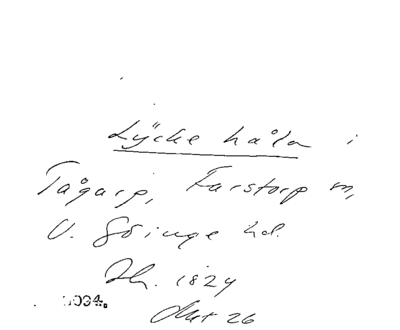 Lÿcke håla i
Tågarp, Farstorp sn,
V. Göinge hd.
Dh. 1824
Akt 26
5034.